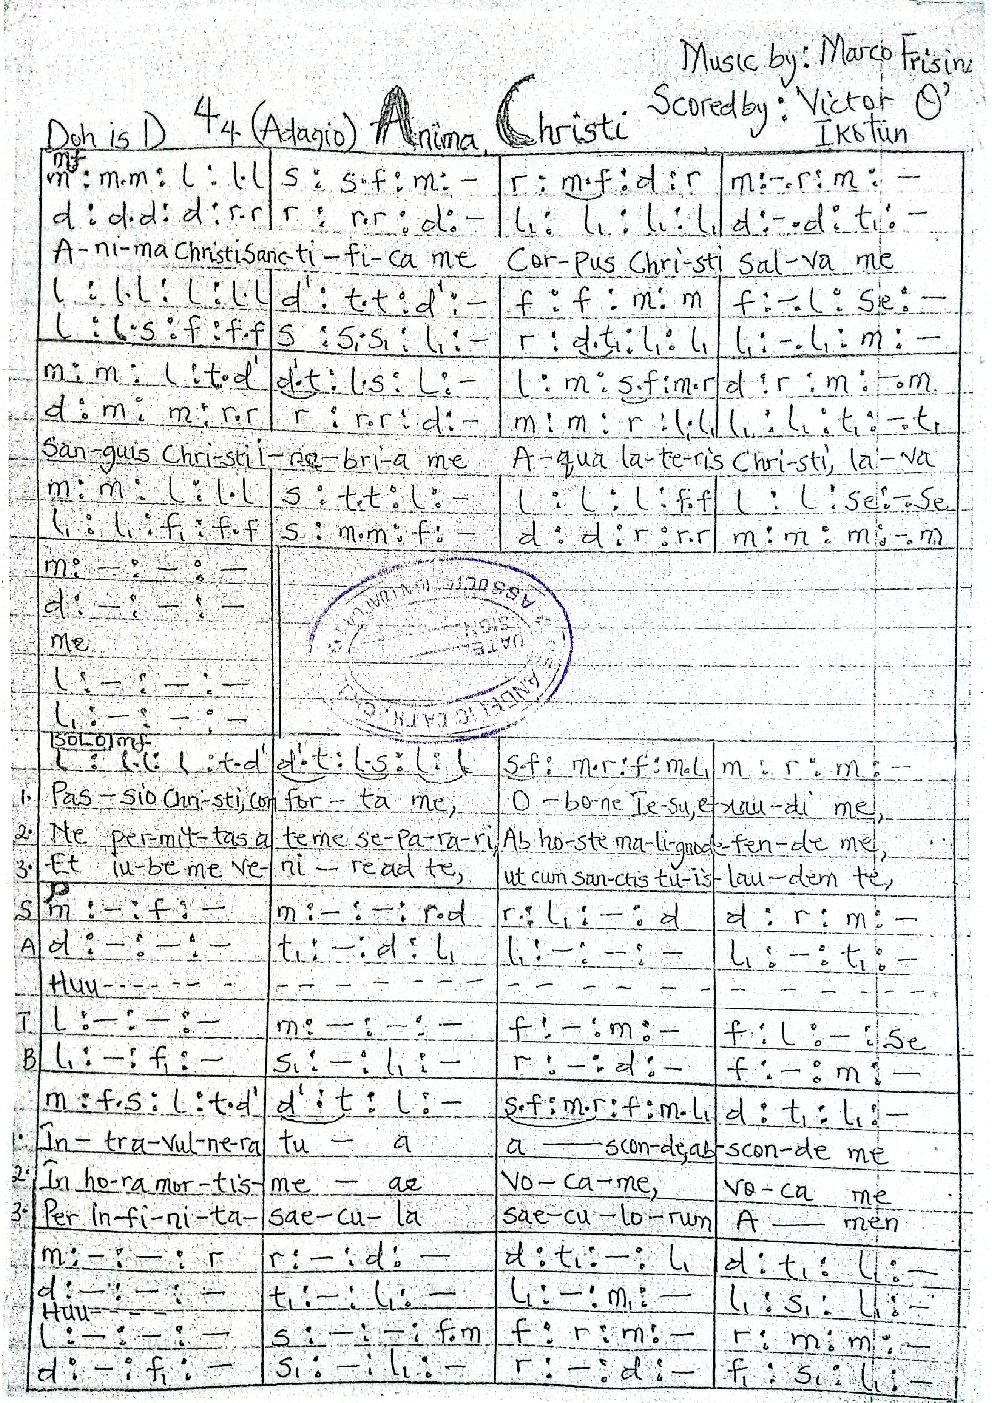 Music by: Marco Frisina
Scored by: Victor O'
Ikotun
Doh is D 4/4 (Adagio) Anima Christi
mf
m : m.m : l : l.l | s : s.f : m : – | r : m.f : d : r | m : –.r : m : –
d : d.d : d : r.r | r : r.r : d : – | l₁ : l₁ : l₁ : l₁ | d : –.d : t₁ : –
A-ni-ma Christi Sanc-ti-fi-ca me Cor-pus Chri-sti Sal-va me
l : l.l : l : l.l | d' : t.t : d' : – | f : f : m : m | f : –.l : se : –
l : l.s : f : f.f | s : s₁.s₁ : l₁ : – | r : d.t₁ : l₁ : l₁ | l₁ : –.l₁ : m : –
m : m : l : t.d' | d'.t : l.s : l : – | l : m : s.f : m.r | d : r : m : –.m
d : m : m : r.r | r : r.r : d : – | m : m : r : l₁.l₁ | l₁ : l₁ : t₁ : –.t₁
San-guis Chri-sti i-ne-bri-a me A-qua la-te-ris Chri-sti, la-va
m : m : l : l.l | s : t.t : l : – | l : l : l : f.f | l : l : se : –.se
l₁ : l₁ : f₁ : f.f | s : m.m : f : – | d : d : r : r.r | m : m : m : –.m
m : – : – : –
d : – : – : –
me
l : – : – : –
l₁ : – : – : –
SOLO mf
l : l.l : l : t.d' | d'.t : l.s : l : l | s.f : m.r : f : m.l₁ | m : r : m : –
1. Pas-sio Chri-sti, con for-ta me, O-bo-ne Ie-su, e-xau-di me,
2. Ne per-mit-tas a te me se-pa-ra-ri, Ab ho-ste ma-li-gno de-fen-de me,
3. Et iu-be me ve-ni-re ad te, ut cum san-ctis tu-is-lau-dem te,
p
S m : – : f : – | m : – : – : r.d | r : l₁ : – : d | d : r : m : –
A d : – : – : – | t₁ : – : d : l₁ | l₁ : – : – : – | l₁ : – : t₁ : –
Huu - - - - - - - - - - - - - - - - - -
T l : – : – : – | m : – : – : – | f : – : m : – | f : l : – : se
B l₁ : – : f₁ : – | s₁ : – : l₁ : – | r : – : d : – | f : – : m : –
m : f.s : l : t.d' | d' : t : l : – | s.f : m.r : f : m.l₁ | d : t₁ : l₁ : –
1. In-tra-vul-ne-ra tu – a a — scon-de, ab-scon-de me
2. In ho-ra mor-tis-me – ae vo-ca-me, vo-ca me
3. Per in-fi-ni-ta-sae-cu-la sae-cu-lo-rum A — men
m : – : – : r | r : – : d : – | d : t₁ : – : l₁ | d : t₁ : l₁ : –
d : – : – : – | t₁ : – : l₁ : – | l₁ : – : m₁ : – | l₁ : s₁ : l₁ : –
Huu - - - -
l : – : – : – | s : – : – : f.m | f : r : m : – | r : m : m : –
d : – : f₁ : – | s₁ : – : l₁ : – | r : – : d : – | f₁ : s₁ : l₁ : –